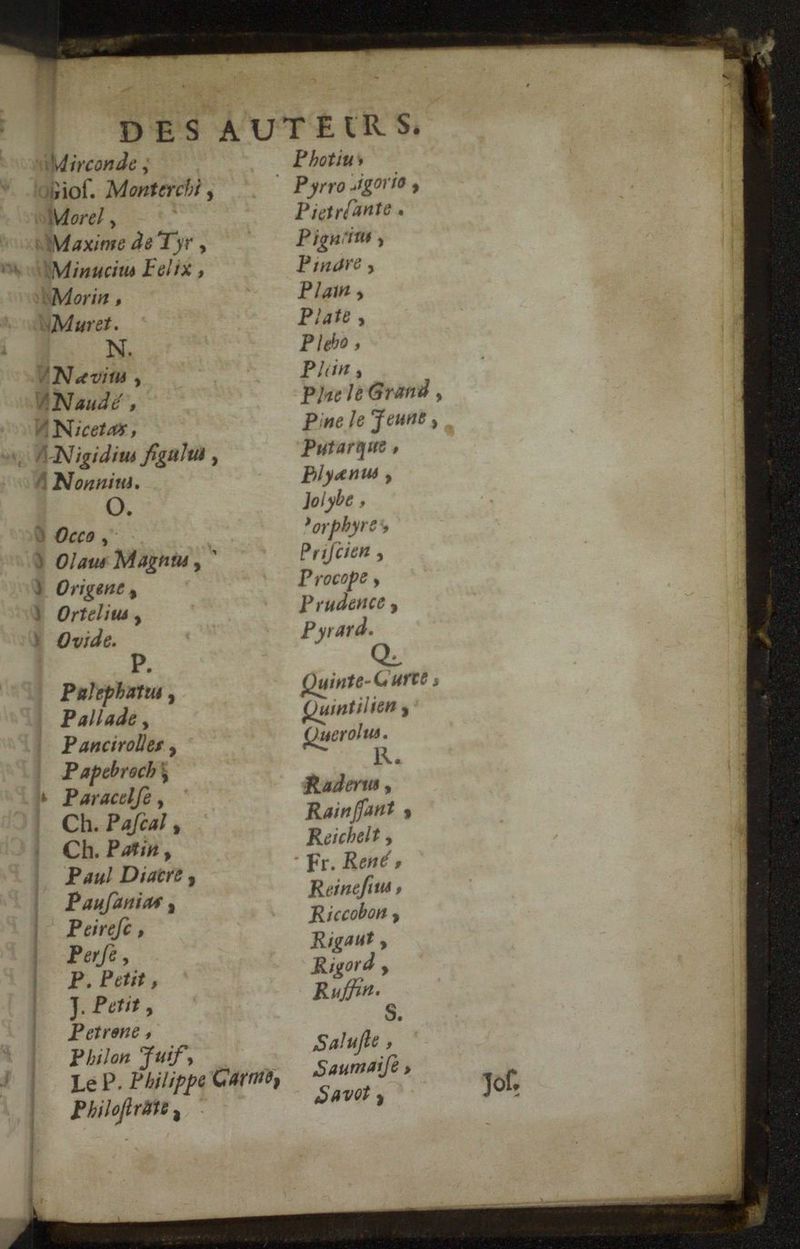 DES AUTEURS.
Mirconde ;
Giof. Monterchi ,
Morel ,
Maxime de Tyr ,
Minucius Felix ,
Morin ,
Muret.
N.
Nævius ,
Naudé ,
Nicetas ,
Nigidius figulus ,
Nonnius.
O.
Occo ,
Olaus Magnus ,
Origene ,
Ortelius ,
Ovide.
P.
Palephatus ,
Pallade ,
Pancirolles ,
Papebroch ;
Paracelſe ,
Ch. Paſcal ,
Ch. Patin ,
Paul Diacre ,
Pauſanias ,
Peireſc ,
Perſe ,
P. Petit ,
J. Petit ,
Petrone ,
Philon Juif ,
Le P. Philippe Carme,
Philoſtrate ,
Photius
Pyrro Ligorio ,
Pietrſante .
Pignrius ,
Pindre ,
Plain ,
Plate ,
Plebo ,
Plin ,
Pline le Grand ,
Pine le Jeune ,
Putarque ,
Plyænus ,
Jolybe ,
Porphyre ,
Priſcien ,
Procope ,
Prudence ,
Pyrard.
Q.
Quinte-Curce ;
Quintilien ,
Querolus.
R.
Raderus ,
Rainſſant ,
Reichelt ,
Fr. René ,
Reineſius ,
Riccobon ,
Rigaut ,
Rigord ,
Ruffin.
S.
Saluſte ,
Saumaiſe ,
Savot ,
Joſ.